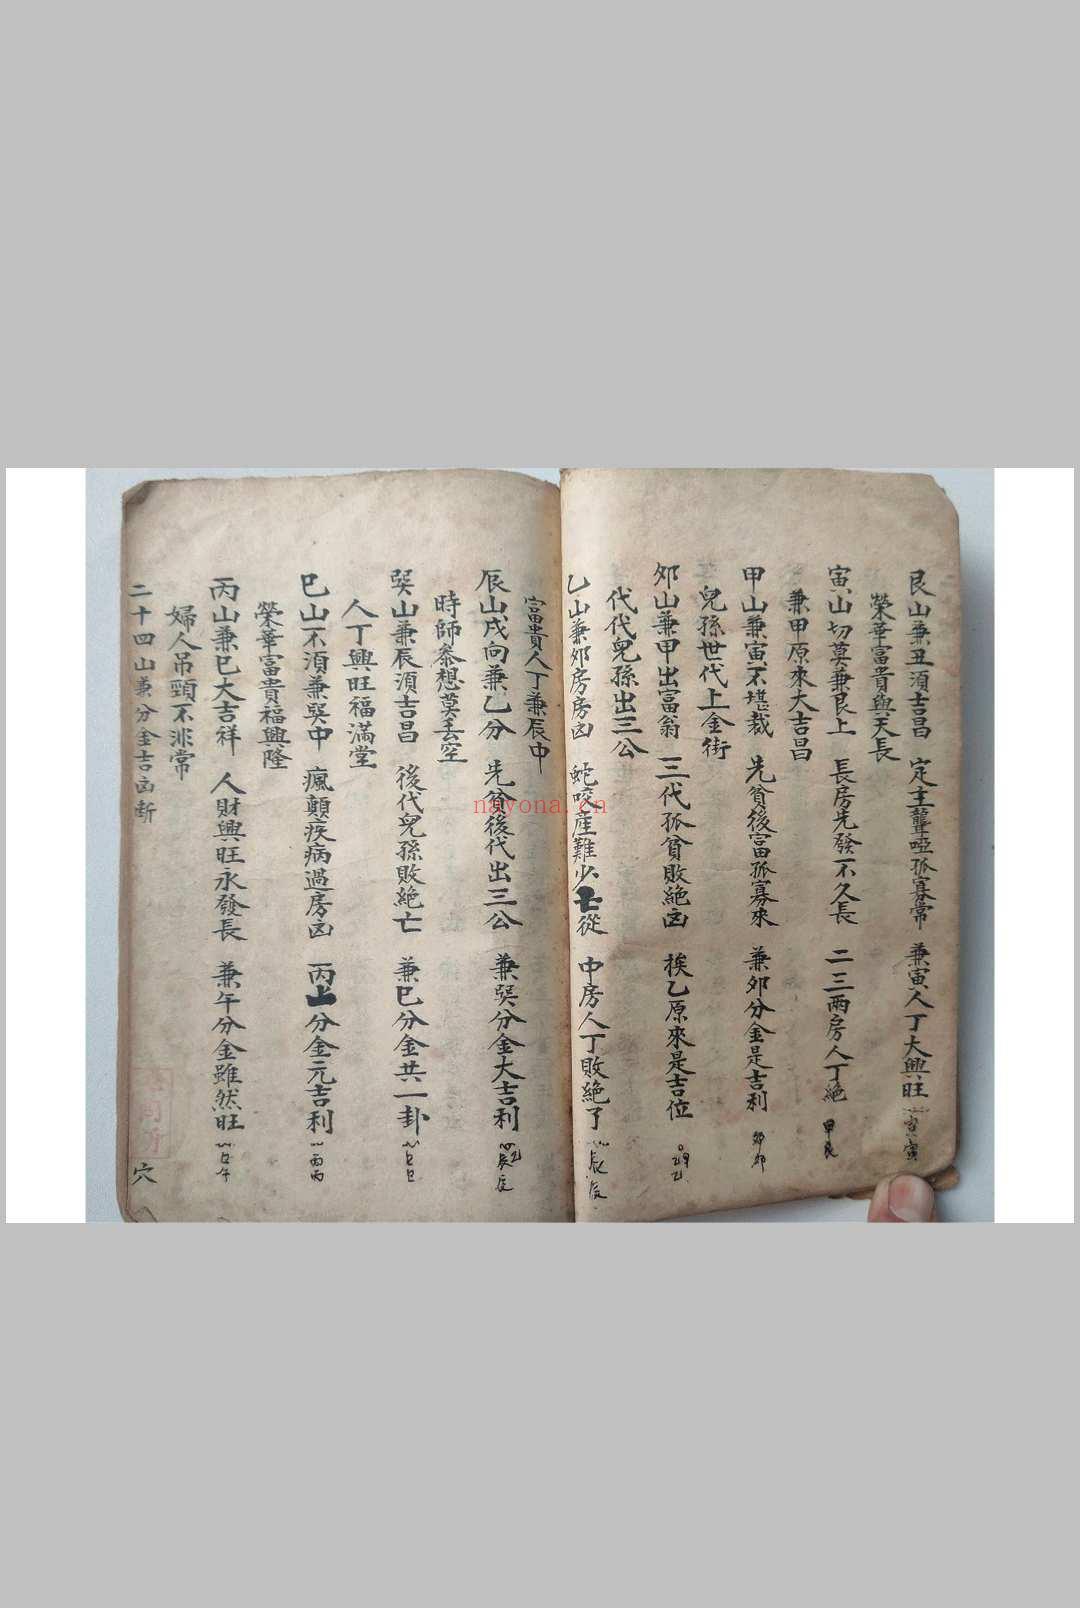 艮山兼丑須吉昌 定主聾啞孤寡常 兼寅人丁大興旺 寅寅
榮華富貴與天長
寅山切莫兼艮上 長房先發不久長 二三兩房人丁絶 甲艮
兼甲原來大吉昌
甲山兼寅不堪裁 先貧後富孤寡來 兼夘分金是吉利 夘夘
兒孫世代上金街
夘山兼甲出富翁 三代孤貧敗絶凶 挨乙原來是吉位
代代兒孫出三公
乙山兼夘房房凶 蛇咬産難少亡從 中房人丁敗絶了 辰辰
富貴人丁兼辰中
辰山戌向兼乙分 先貧後代出三公 兼巽分金大吉利
時師叅想莫丢空
巽山兼辰須吉昌 後代兒孫敗絶亡 兼巳分金共一卦 巳巳
人丁興旺福滿堂
巳山不須兼巽中 瘋顛疾病過房凶 丙上分金元吉利 丙丙
榮華富貴福興隆
丙山兼巳大吉祥 人財興旺永發長 兼午分金雖然旺 午
婦人吊頸不非常
二十四山兼分金吉凶断 穴
nayona.cn